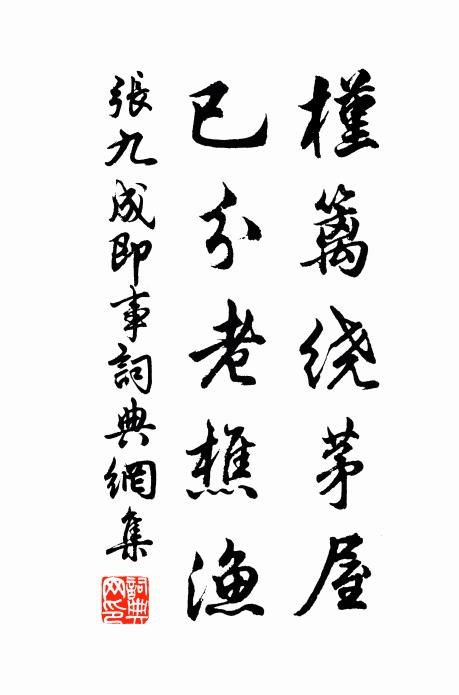 槿篱绕茅屋
已分老樵渔
張九成即事詞典網集
詞典網印